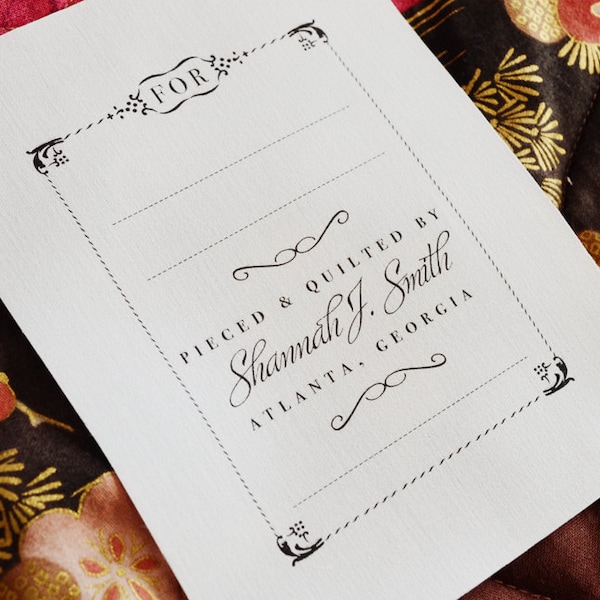 FOR
PIECED & QUILTED BY
Shannah J. Smith
ATLANTA, GEORGIA